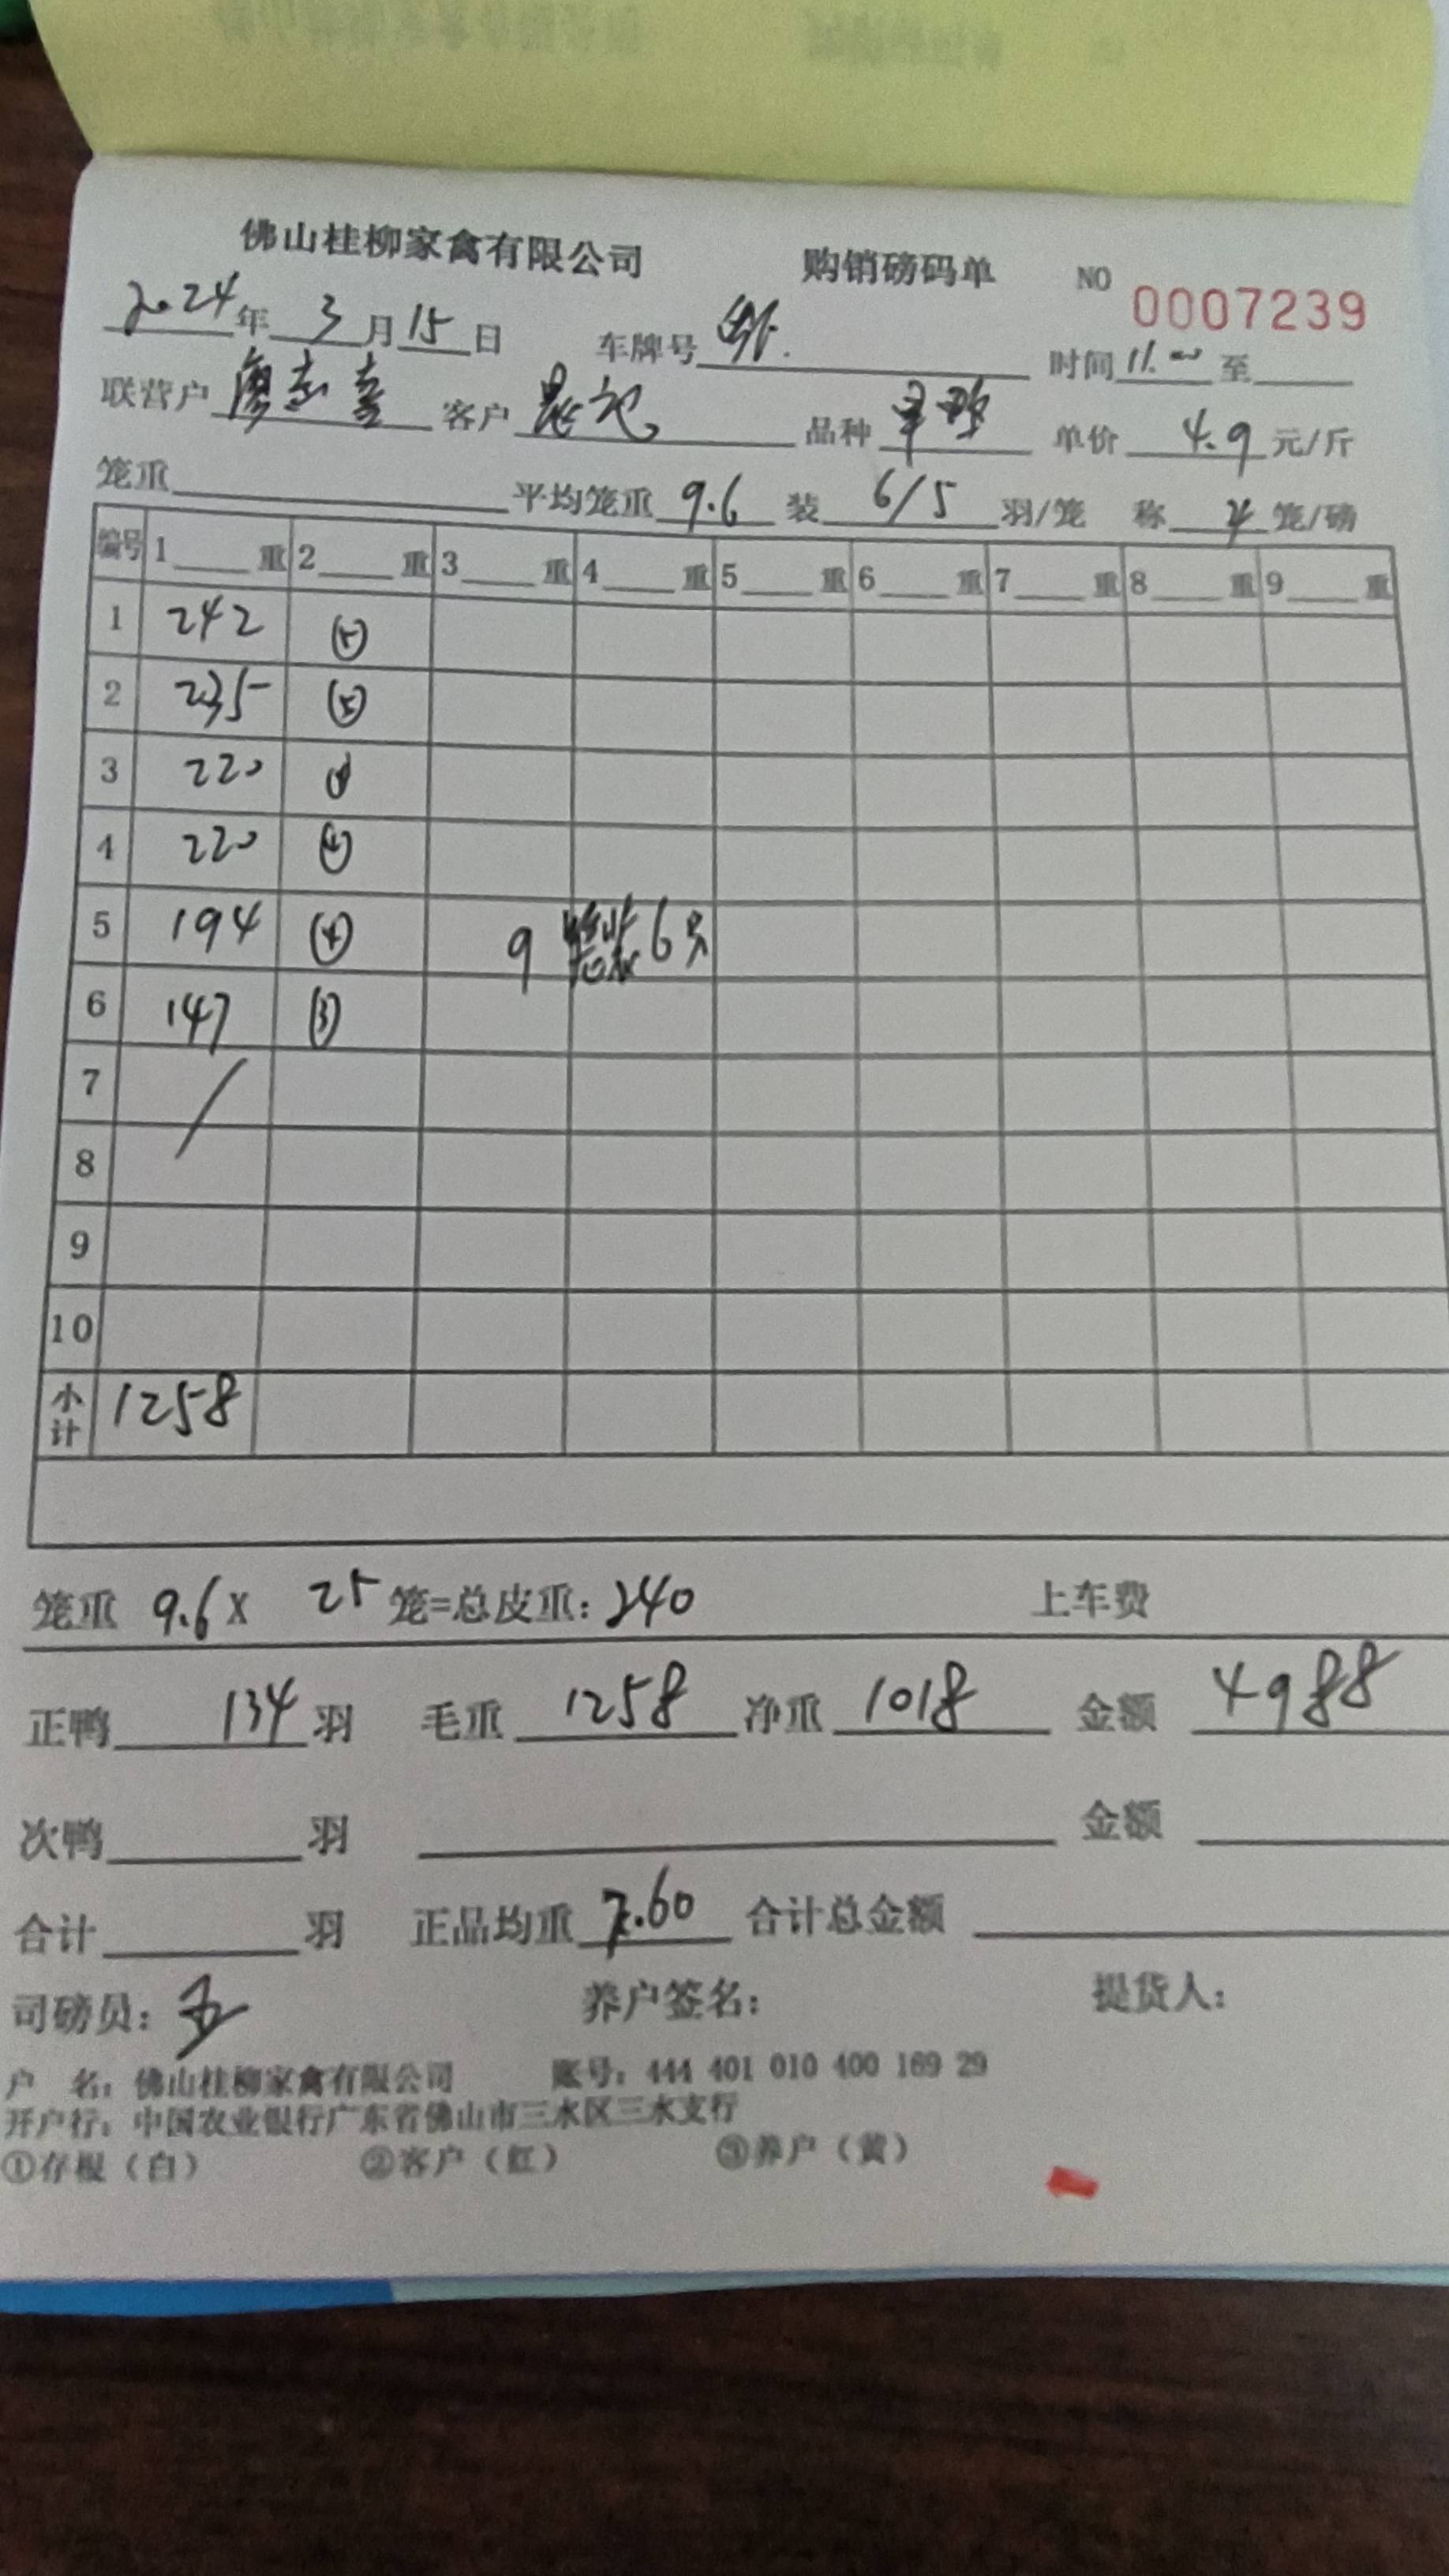 佛山桂柳家禽有限公司 购销磅码单 NO 0007239
2024年3月15日 车牌号 时间11.00至
联营户 廖志 客户 记 品种 单价4.9元/斤
笼重 平均笼重9.6 装6/5羽/笼 称4笼/磅
编号 1 重 2 重 3 重 4 重 5 重 6 重 7 重 8 重 9 重
1 242 ⑤
2 235 ⑤
3 220 ④
4 220 ④
5 194 ④ 9笼装6只
6 147 ③
7
8
9
10
小计 1258
笼重 9.6 X 25笼=总皮重:240 上车费
正鸭134羽 毛重1258 净重1018 金额4988
次鸭 羽 金额
合计 羽 正品均重7.60 合计总金额
司磅员: 养户签名: 提货人:
户 名:佛山桂柳家禽有限公司 账号:444 401 010 400 169 29
开户行:中国农业银行广东省佛山市三水区三水支行
①存根(白) ②客户(红) ③养户(黄)